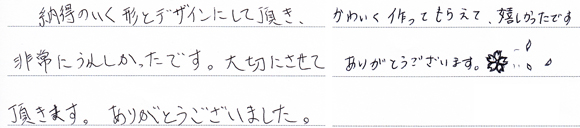 納得のいく形とデザインにして頂き、
非常にうれしかったです。大切にさせて
頂きます。 ありがとうございました。
かわいく作ってもらえて、嬉しかったです
ありがとうございます。